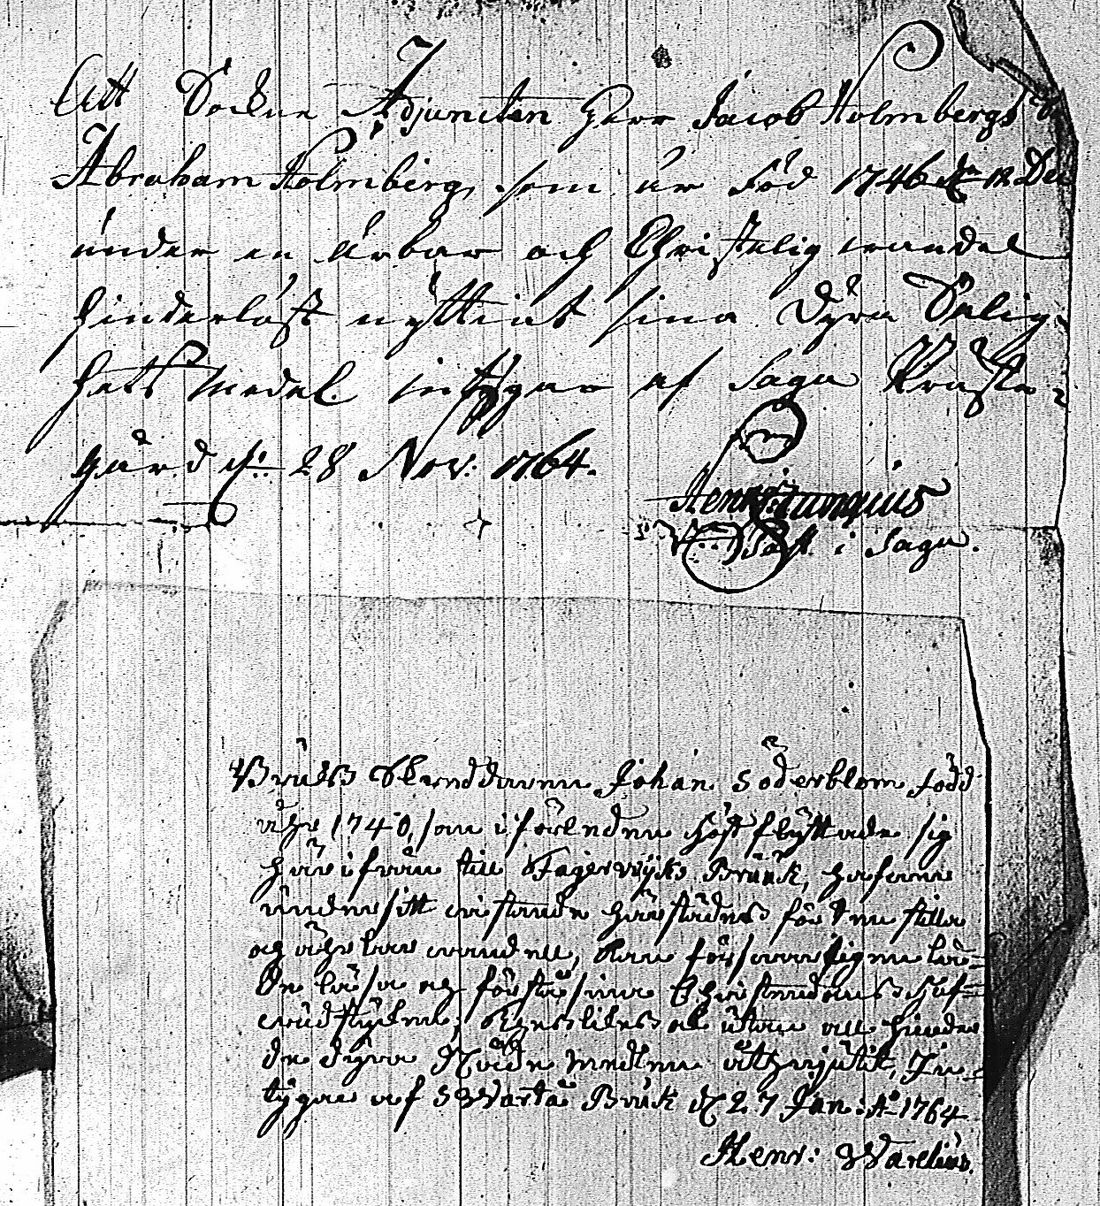 Att Adjuncten Herr Jacob Holmbergs
Abraham Holmberg, som är född 1746 d. 12 Dec
under en ärbar och Christelig wandel
hinderlöst nyttiat sina dyra Salig-
hets Medel intygar af Sagu Präste-
gård d: 28 Nov: 1764.
Henr:
Past. i Sagu.
Bruks Johan Söderblom född
åhr 1740, som i förleden höst flyttade sig
härifrån till Fagerwijks Bruuk, hafwer
under sitt wistande härstädes fördt en stilla
og ährbar wandel, kan försvarligen bå-
de läsa og förstå sina Christendoms huf-
wudstycken, utan all hinder
de dyra Nåde medlen åthniutit, In-
tygar af Swartå Bruk d. 27 Jan: A:o 1764
Henr: Warelius.